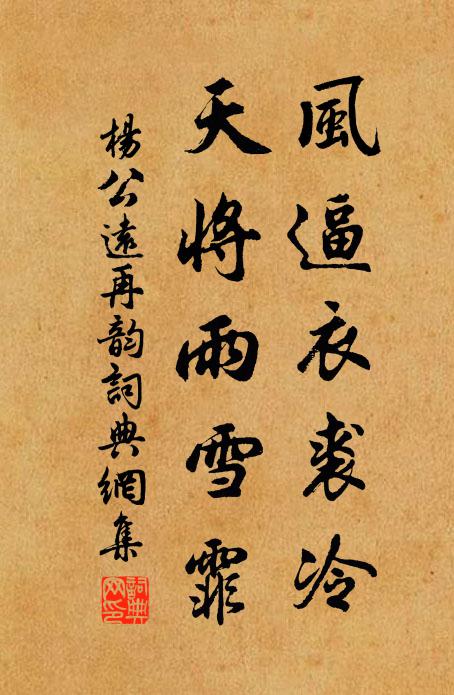 風逼衣裘冷
天將雨雪霏
楊公遠再韵詞典網集
詞典網印